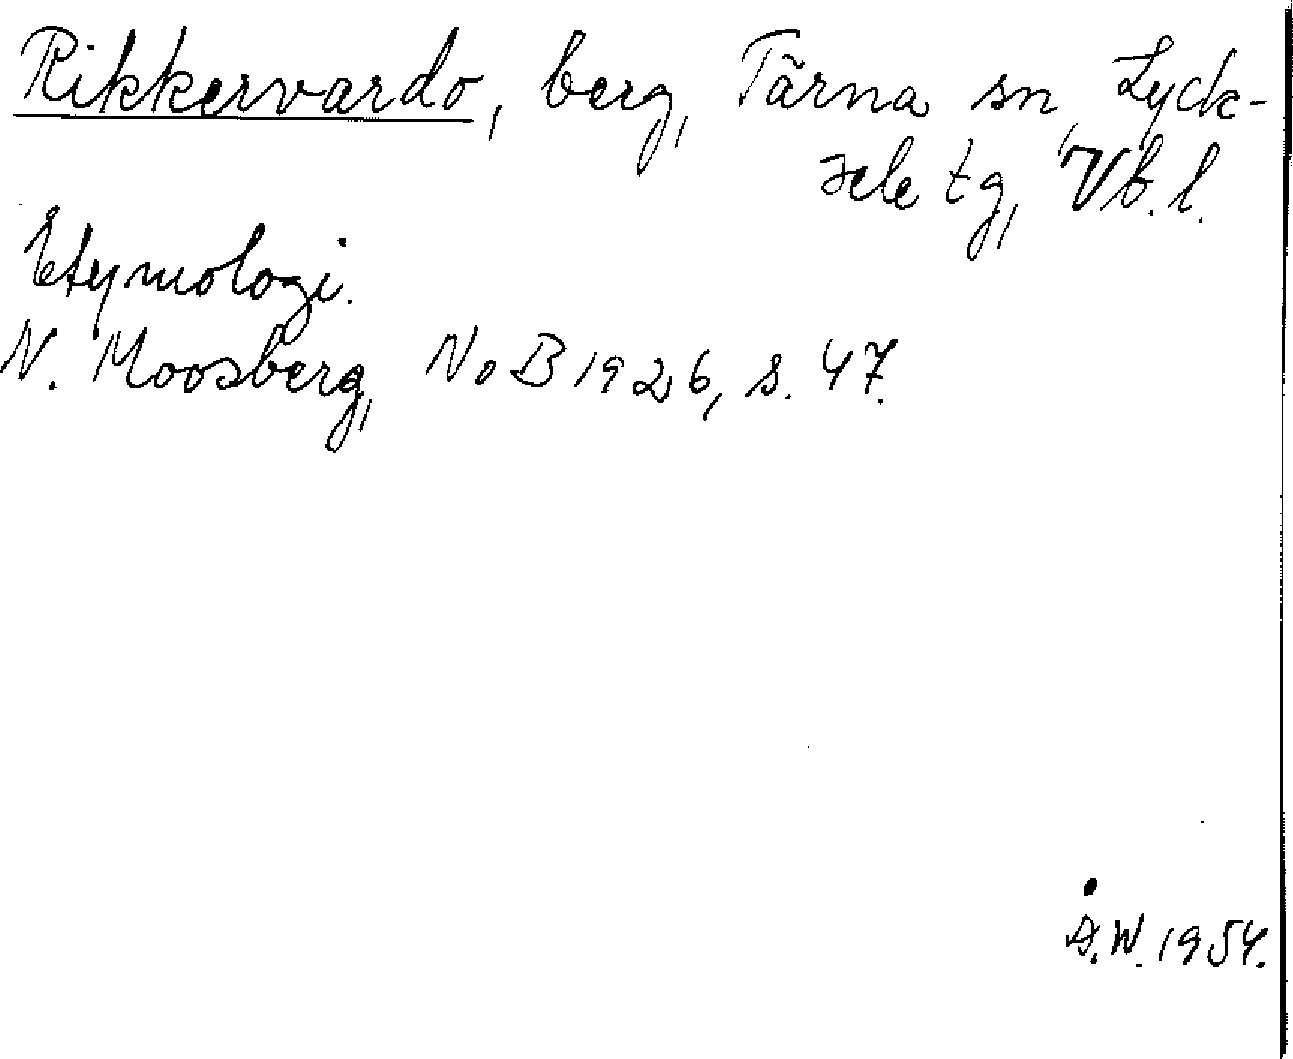 Rikkervardo, berg, Tärna sn, Lyck-
sele tg, Vb. l.
Etymologi.
N. Moosberg, NoB 1926, s. 47.
Å.W. 1954.